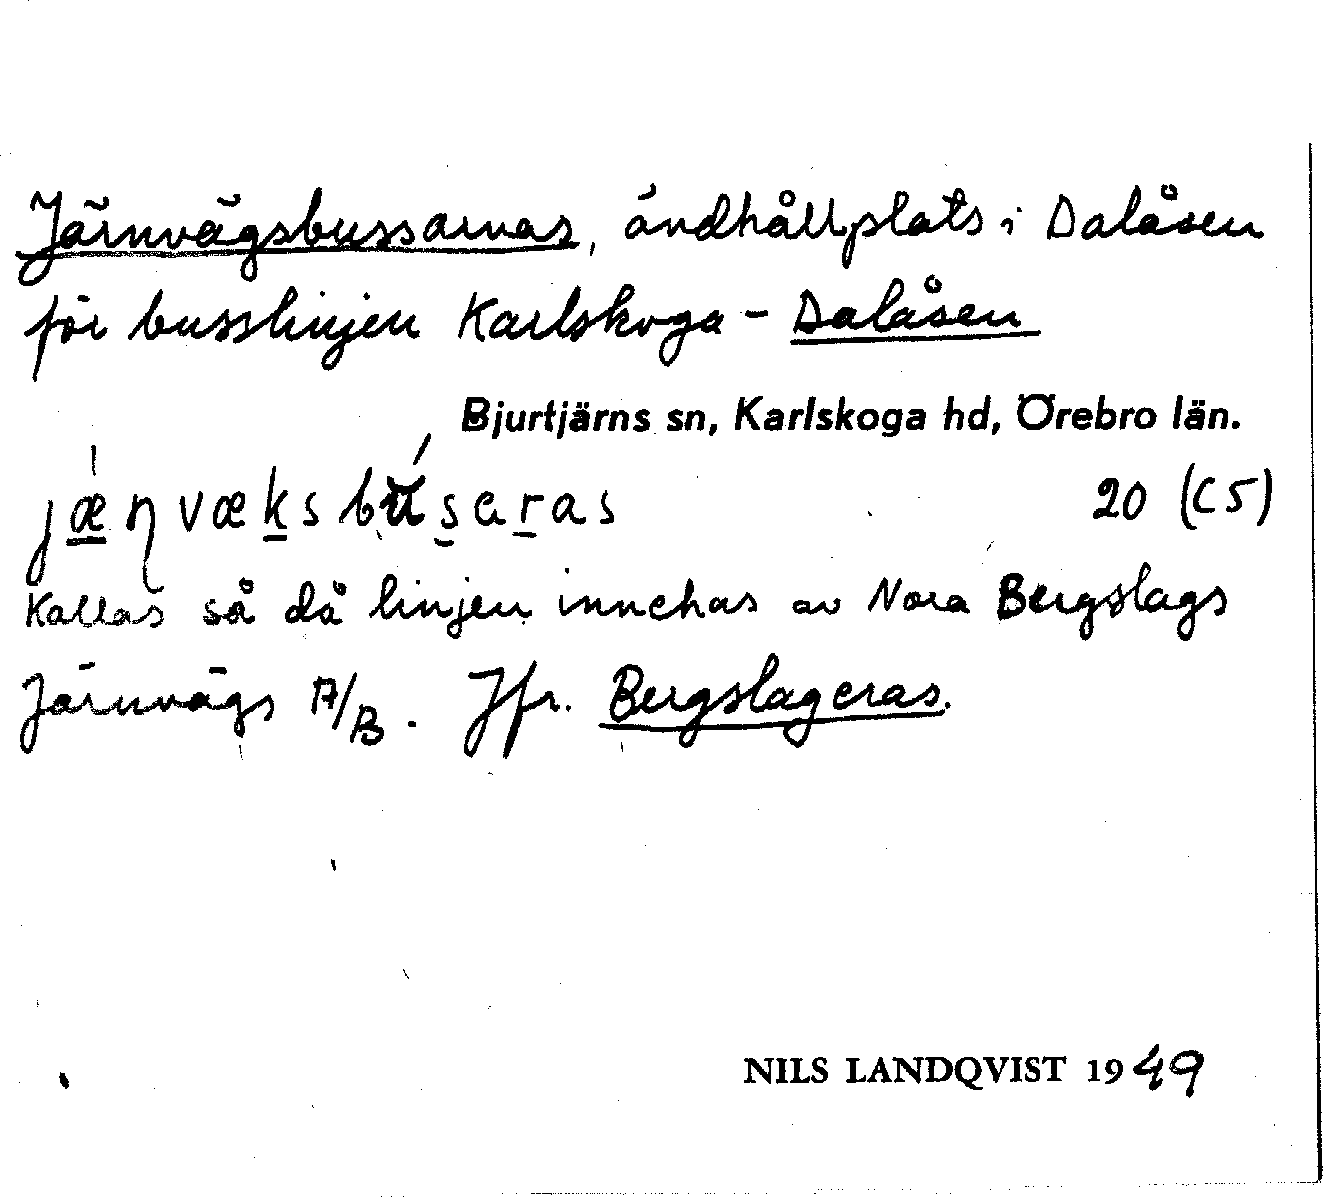 Järnvägsbussarnas, ändhållplats i Dalåsen
för busslinjen Karlskoga - Dalåsen
Bjurtjärns sn, Karlskoga hd, Örebro län.
jæɳvæksbusaras 20 (C5)
Kallas så då linjen innehas av Nora Bergslags
Järnvägs A/B. Jfr. Bergslageras.
NILS LANDQVIST 1949